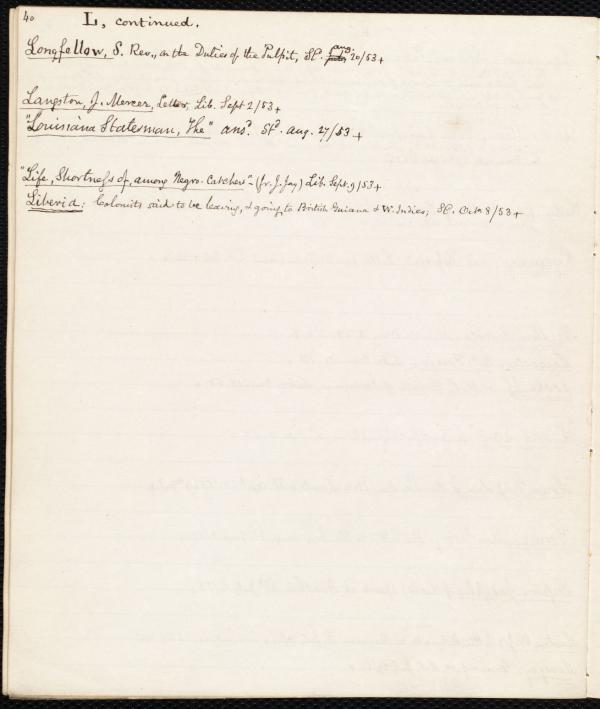 40
L, continued.
Longfellow, S. Rev., on the Duties of the Pulpit, St. Aug. 20/53 +
Langston, J. Mercer, Letter, Lib. Sept 2/53 +
"Louisiana Statesman, The" ansd. Std. Aug. 27/53 +
"Life, Shortness of, among Negro-Catchers" - (fr. J. Jay) Lib. Sept. 9/53 +
Liberia: Colonists said to be leaving, & going to British Guiana & W. Indies; St. Oct. 8/53 +